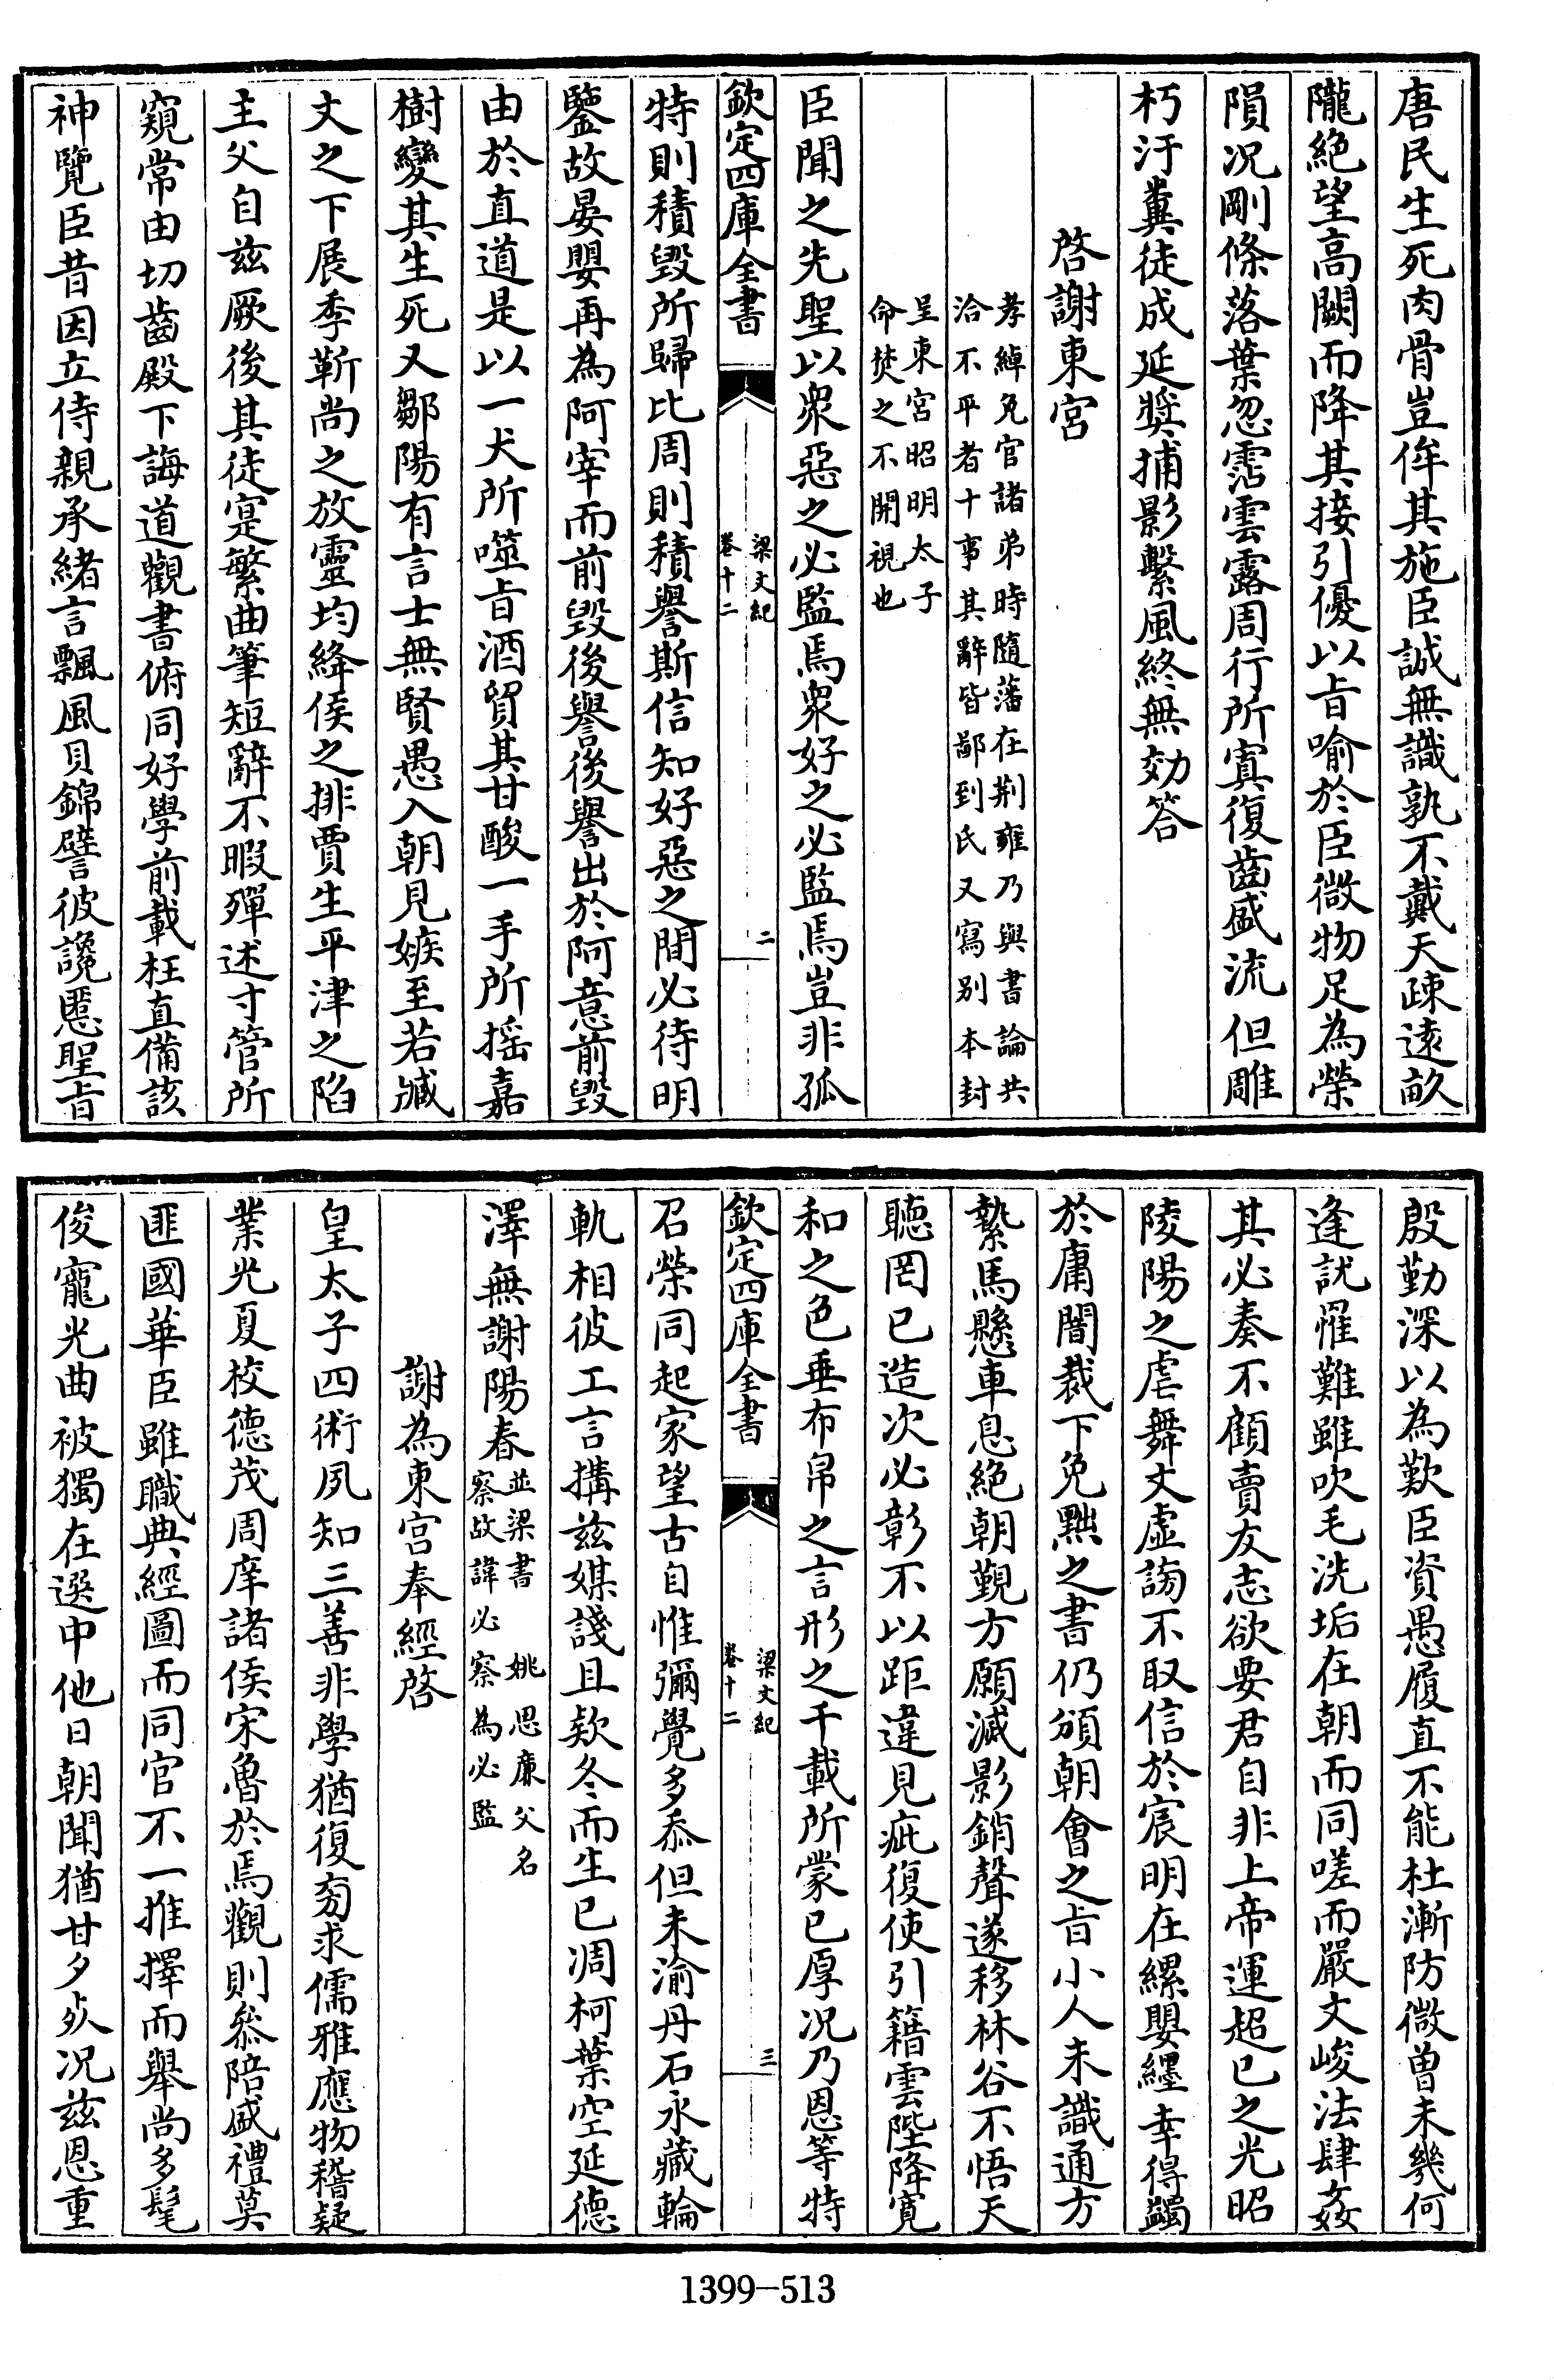 唐民生死肉骨豈侔其施臣誠無識孰不戴天疎遠畝
隴絶望高闕而降其接引優以㫖喻於臣微物足為榮
隕况剛條落葉忽霑雲露周行所寘復齒盛流但雕
朽汙糞徒成延奬捕影繫風終無効答
啓謝東宮
孝綽免官諸弟時隨藩在荆雍乃與書論共
洽不平者十事其辭皆鄙到氏又寫别本封
呈東宮昭明太子
命焚之不開視也
臣聞之先聖以衆惡之必監焉衆好之必監焉豈非孤
欽定四庫全書
梁文紀
卷十二
二
特則積毀所歸比周則積譽斯信知好惡之間必待明
鑒故晏嬰再為阿宰而前毀後譽後譽出於阿意前毀
由於直道是以一犬所噬㫖酒貿其甘酸一手所揺嘉
樹變其生死又鄒陽有言士無賢愚入朝見嫉至若臧
文之下展季靳尚之放靈均絳侯之排賈生平津之陷
主父自兹厥後其徒寔繁曲筆短辭不暇殫述寸管所
窺常由切齒殿下誨道觀書俯同好學前載枉直備該
神覽臣昔因立侍親承緒言飄風貝錦譬彼讒慝聖㫖
殷勤深以為歎臣資愚履直不能杜漸防微曾未幾何
逢訧罹難雖吹毛洗垢在朝而同嗟而嚴文峻法肆姦
其必奏不顧賣友志欲要君自非上帝運超已之光昭
陵陽之虐舞文虚謗不取信於宸明在縲嬰纆幸得蠲
於庸闇裁下免黜之書仍頒朝會之㫖小人未識通方
縶馬懸車息絶朝覲方願滅影銷聲遂移林谷不悟天
聽罔已造次必彰不以距違見疵復使引籍雲陛降寛
和之色垂布帛之言形之千載所蒙已厚况乃恩等特
欽定四庫全書
梁文紀
卷十二
三
召榮同起家望古自惟彌覺多忝但未渝丹石永藏輪
軌相彼工言搆兹媒諓且欵冬而生已凋柯葉空延德
澤無謝陽春並梁書 姚思廉父名
察故諱必察為必監
謝為東宮奉經啓
皇太子四術夙知三善非學猶復旁求儒雅應物稽疑
業光夏校德茂周庠諸侯宋魯於焉觀則叅陪盛禮莫
匪國華臣雖職典經圖而同官不一推擇而舉尚多髦
俊寵光曲被獨在選中他日朝聞猶甘夕㱙况兹恩重
1399-513